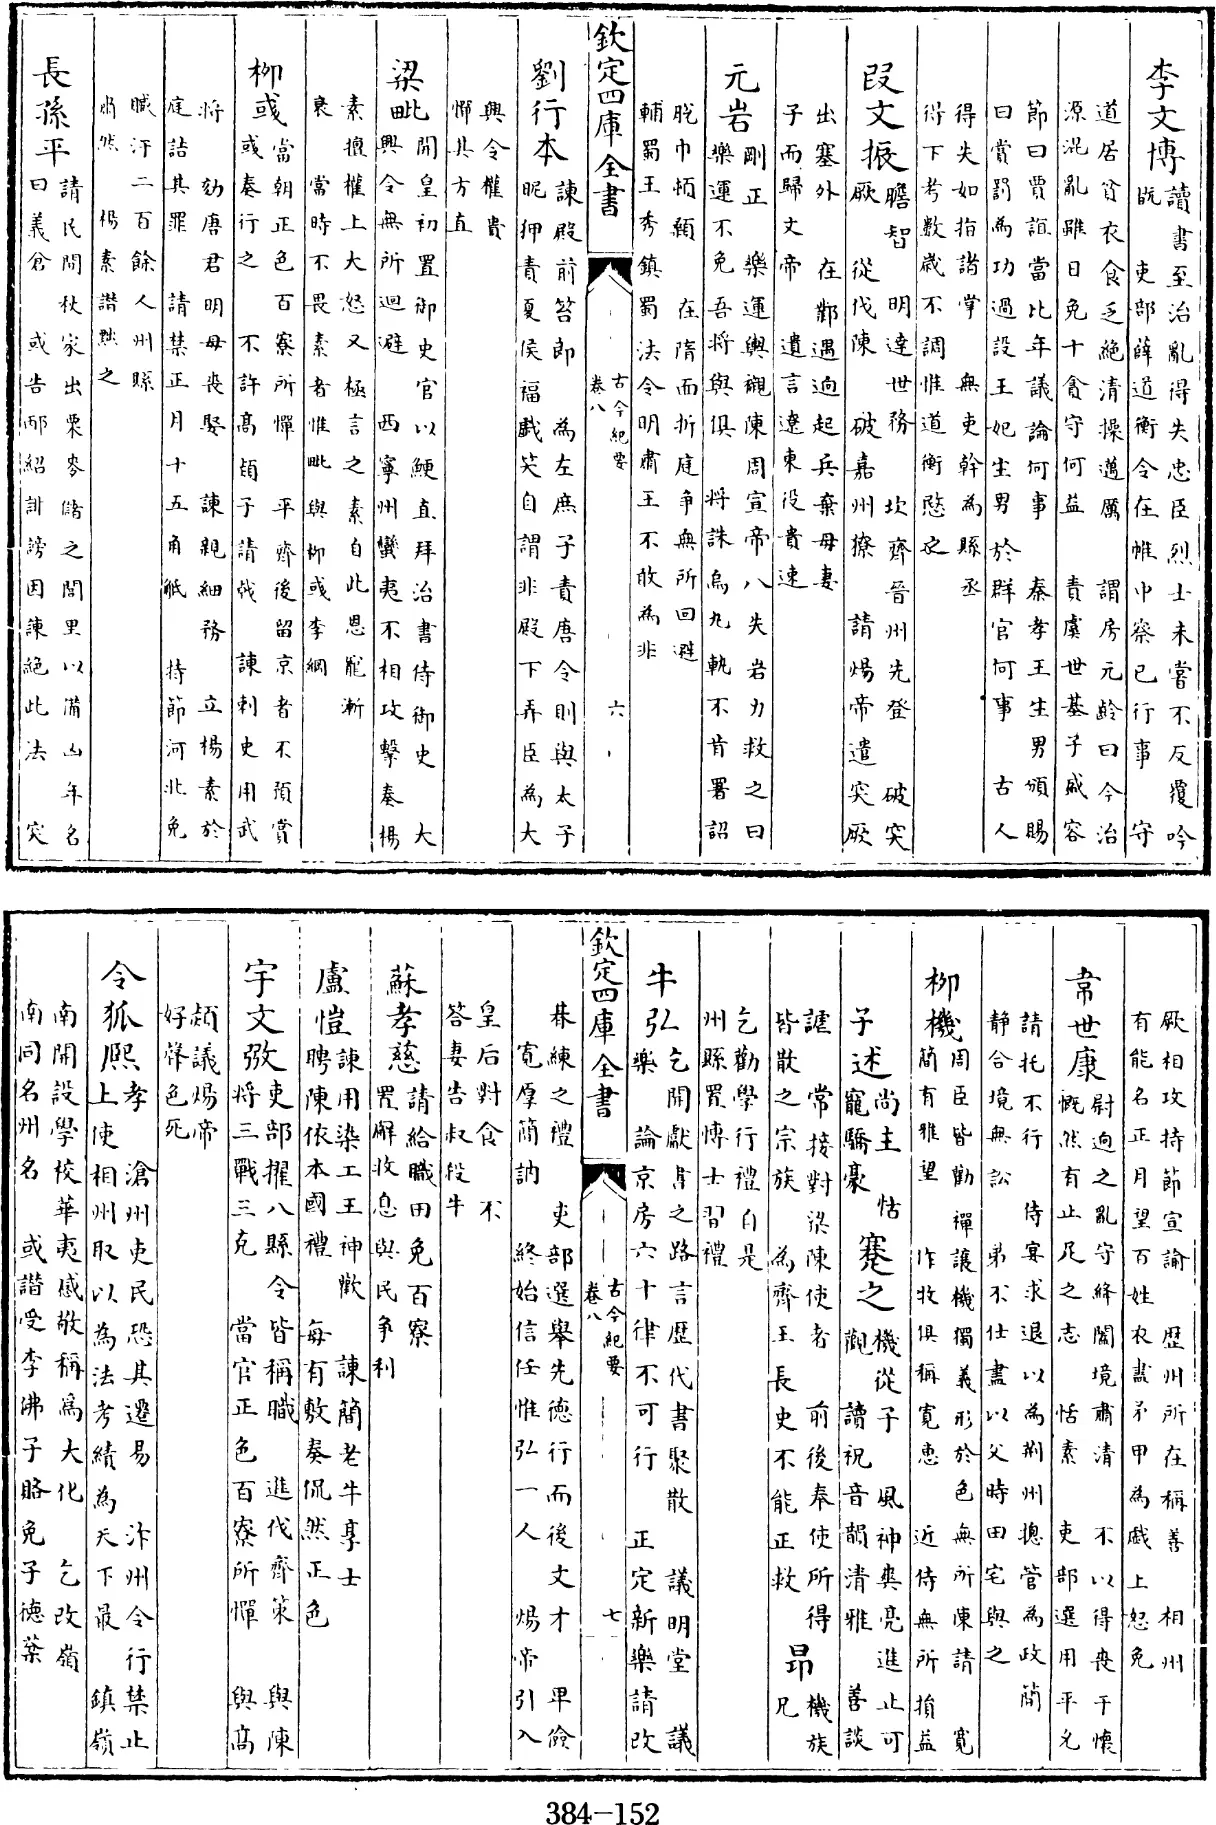 李文博讀書至治亂得失忠臣烈士未嘗不反覆吟
既 吏部薛道衡令在帷巾察已行事 守
道居貧衣食乏絶清操邁厲 謂房元齡曰今治
源混亂雖日免十貪守何益 責虞世基子戚容
節曰賈誼當此年議論何事 秦孝王生男頒賜
曰賞罰為功過設王妃生男於群官何事 古人
得失如指諸掌 無吏幹為縣丞
得下考數歳不調惟道衡愍之
段文振膽智 明達世務 攻齊晉州先登 破突
厥 從伐陳 破嘉州獠 請煬帝遣突厥
出塞外 在鄴遇迥起兵棄母妻
子而歸文帝 遺言遼東役貴速
元岩剛正 樂運輿櫬陳周宣帝八失岩力救之曰
樂運不免吾將與俱 將誅烏丸軌不肯署詔
脱巾頓顙 在隋而折庭爭無所回避
輔蜀王秀鎮蜀法令明肅王不敢為非
欽定四庫全書
古今紀要
卷八
六
劉行本諫殿前笞郎 為左庶子責唐令則與太子
昵狎責夏侯福戯笑自謂非殿下弄臣為大
興令權貴
憚其方直
梁毗開皇初置御史官以鯁直拜治書侍御史 大
興令無所迴避 西寧州蠻夷不相攻擊奏楊
素擅權上大怒又極言之素自此恩寵漸
衰 當時不畏素者惟毗與柳彧李綱
柳彧當朝正色百寮所憚 平齊後留京者不預賞
彧奏行之 不許髙熲子請㦸 諫刺史用武
將 劾唐君明母喪娶 諫親細務 立楊素於
庭詰其罪 請禁正月十五角觝 持節河北免
贓汙二百餘人州縣
肅然 楊素譖黜之
長孫平請民間秋家出粟麥儲之閭里以備凶年名
曰義倉 或告邴紹訕謗因諫絶此法 突
厥相攻持節宣諭 歴州所在稱善 相州
有能名正月望百姓衣畫衣甲為戯上怒免
韋世康尉迥之亂守絳闔境肅清 不以得喪干懷
慨然有止足之志 恬素 吏部選用平允
請托不行 侍宴求退以為荆州摠管為政簡
靜合境無訟 弟不仕盡以父時田宅與之
柳機周臣皆勸禪讓機獨義形於色無所陳請 寛
簡有雅望 作牧俱稱寛惠 近侍無所損益
子述尚主 怙
寵驕豪
謇之機從子 風神爽亮進止可
觀 讀祝音韻清雅 善談
謔 常接對梁陳使者 前後奉使所得
皆散之宗族 為齊王長史不能正救
昂機族
兄
乞勸學行禮自是
州縣置博士習禮
牛弘乞開獻書之路言歴代書聚散 議明堂 議
樂 論京房六十律不可行 正定新樂請改
欽定四庫全書
古今紀要
卷八
七
朞練之禮 吏部選舉先德行而後文才 卑儉
寛厚簡訥 終始信任惟弘一人 煬帝引入
皇后對食 不
答妻告叔殺牛
蘇孝慈請給職田免百寮
置廨收息與民争利
盧愷諫用染工王神歡 諫簡老牛享士
聘陳依本國禮 每有敷奏侃然正色
宇文㢸吏部擢八縣令皆稱職 進伐齊策 與陳
將三戰三克 當官正色百寮所憚 與髙
熲議煬帝
好聲色死
令狐熙孝 滄州吏民恐其遷易 汴州令行禁止
上使相州取以為法考績為天下最 鎮嶺
南開設學校華夷感敬稱爲大化 乞改嶺
南同名州名 或譖受李佛子賂免子德棻
384-152